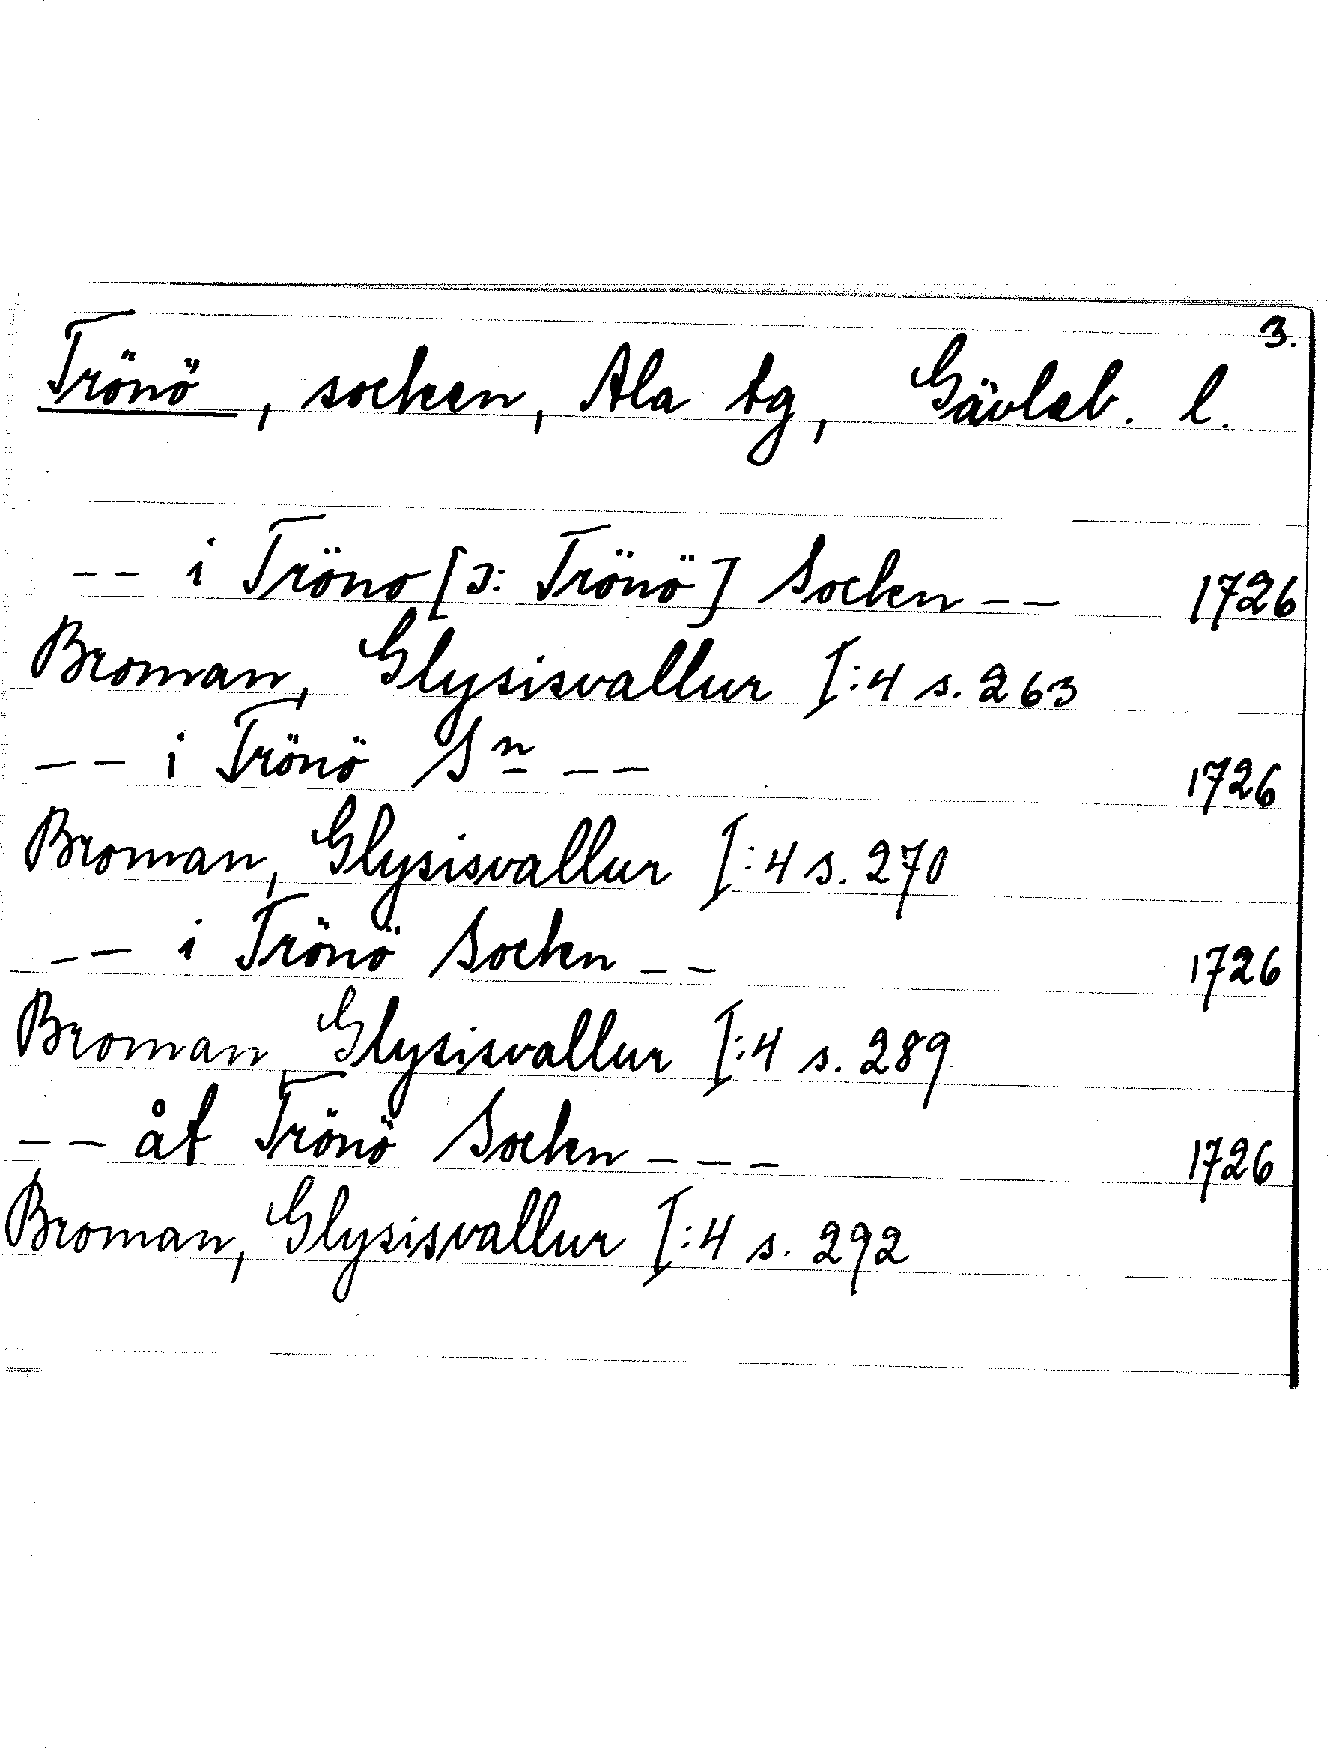 3.
Trönö, socken, Ala tg, Gävleb. l.
-- i Tröno [ɔ: Trönö] Sockn -- 1726
Broman, Glysisvallur I:4 s. 263
-- i Trönö Sn -- 1726
Broman, Glysisvallur I:4 s. 270
-- i Trönö Sockn -- 1726
Broman, Glysisvallur I:4 s. 289
-- åt Trönö Sockn --- 1726
Broman, Glysisvallur I:4 s. 292